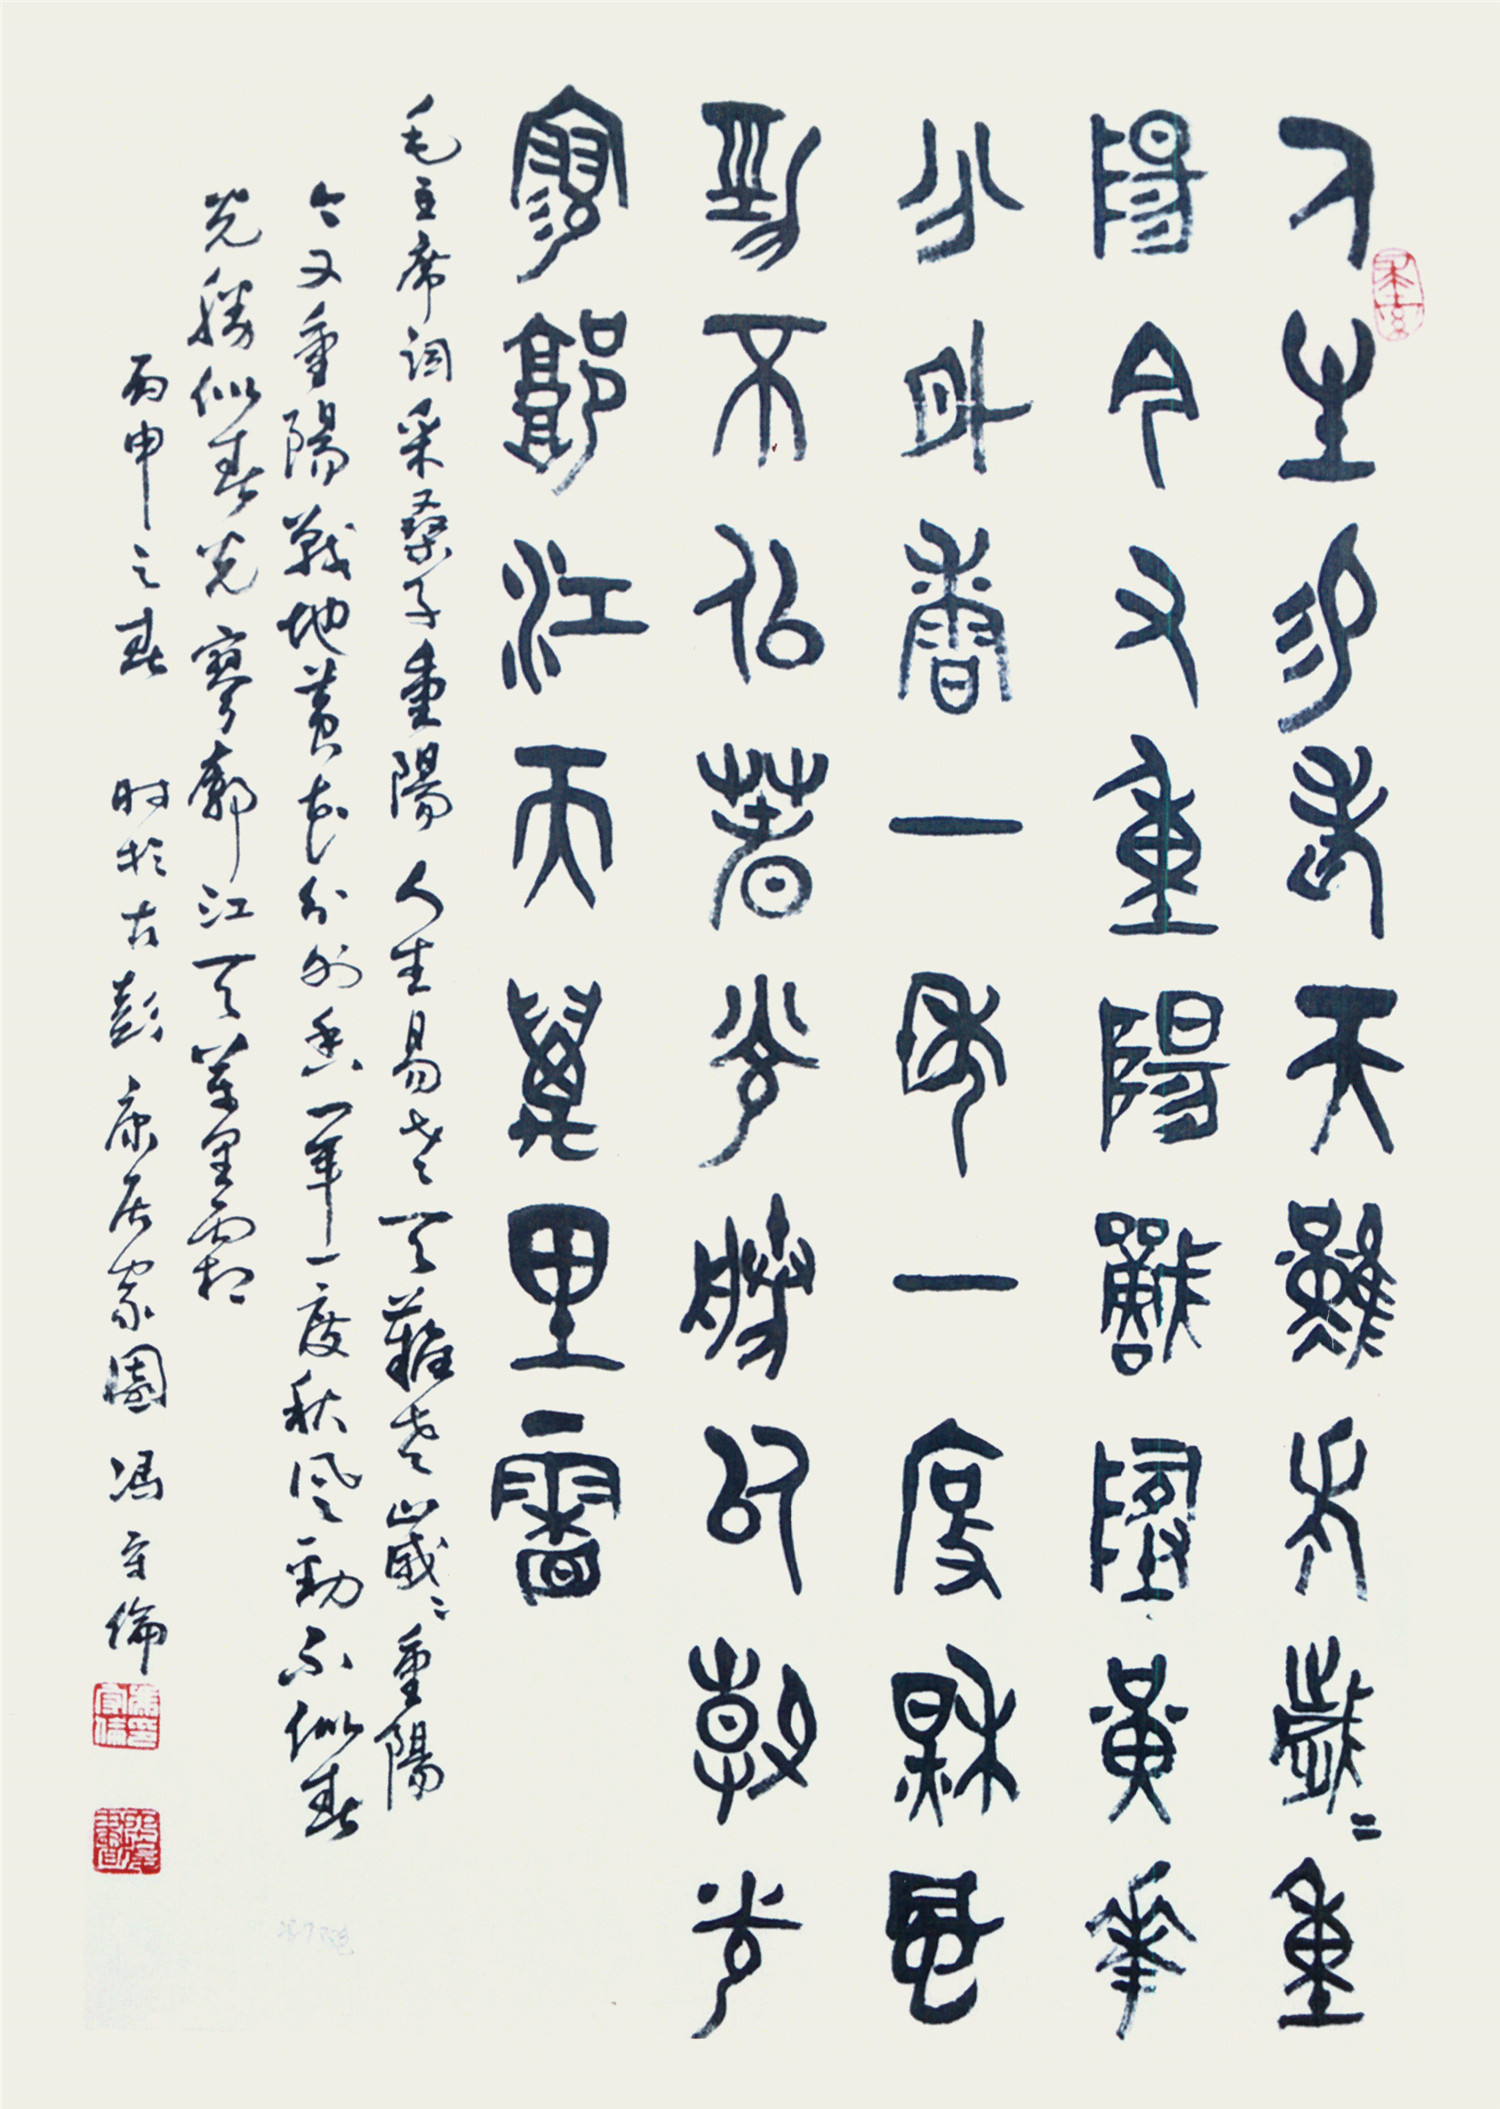 人生易老天難老歲〻重
陽今又重陽戰地黃華
分外香一年一度秋風
勁不似春光勝似春光
寥廓江天萬里霜
毛主席詞采桑子重陽 人生易老天難老歲〻重陽
今又重陽戰地黃花分外香一年一度秋風勁不似春
光勝似春光寥廓江天萬里霜
丙申之春 时於古彭康居家園 馮守倫